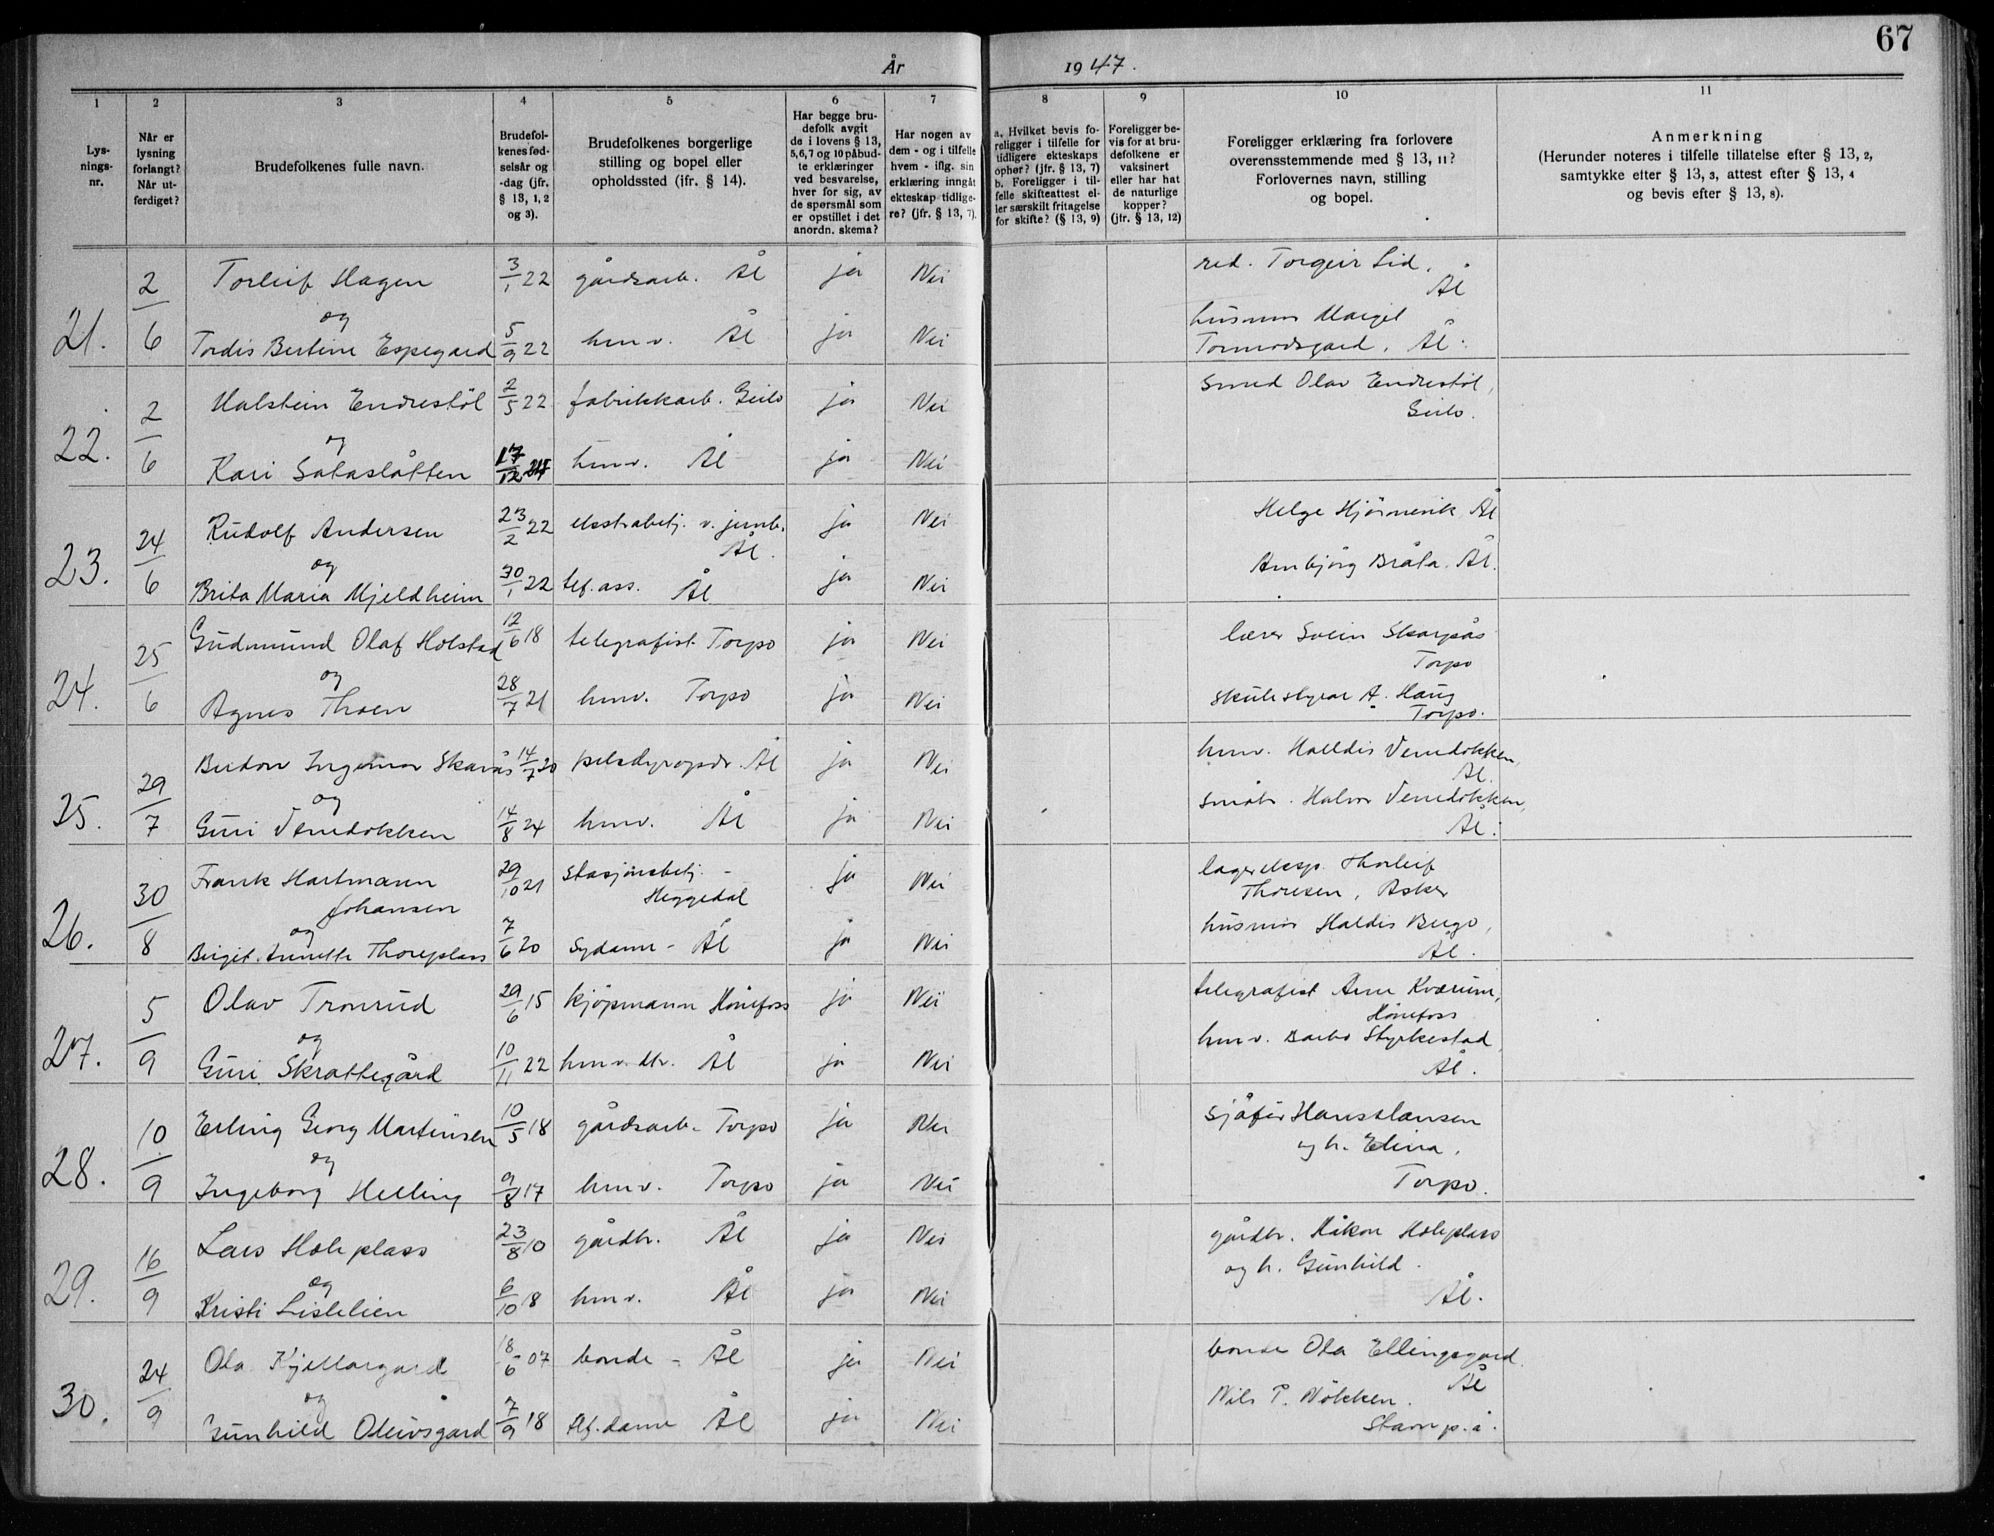 67
År 1947.
1
Lys-
nings-
nr.
2
Når er
lysning
forlangt?
Når ut-
ferdiget?
3
Brudefolkenes fulle navn.
4
Brudefol-
kenes fød-
selsår og
-dag (jfr.
§ 13, 1, 2
og 3).
5
Brudefolkenes borgerlige
stilling og bopel eller
opholdssted (ifr. § 14).
6
Har begge bru-
defolk avgit
de i lovens § 13,
5, 6, 7 og 10 påbud-
te erklæringer
ved besvarelse,
hver for sig, av
de spørsmål som
er opstillet i det
anordn. skema?
7
Har nogen av
dem - og i tilfelle
hvem - iflg. sin
erklæring inngåt
ekteskap tidlige-
re? (jfr. § 13, 7).
8
a. Hvilket bevis fo-
religger i tilfelle for
tidligere ekteskaps
ophør? (jfr. § 13, 7)
b. Foreligger i til-
felle skifteattest el-
ler særskilt fritagelse
for skifte? (§ 13, 9)
9
Foreligger be-
vis for at bru-
defolkene er
vaksinert
eller har hat
de naturlige
kopper?
(jfr. § 13, 12)
10
Foreligger erklæring fra forlovere
overensstemmende med § 13, 11?
Forlovernes navn, stilling
og bopel.
11
Anmerkning
(Herunder noteres i tilfelle tillatelse efter § 13, 2,
samtykke efter § 13, 3, attest efter § 13, 4
og bevis efter § 13, 8).
21. 2/6 Torleif Hagen 3/1 22 gårdsarb. Ål ja Nei red. Torgeir Lid, Ål
og
Tordis Bertine Espegard 5/9 22 hmv. Ål ja Nei husmor Margit
Tormodsgard, Ål.
22. 2/6 Halstein Endrestöl 2/5 22 fabrikkarb. Geilo ja Nei Smed Olav Endrestöl,
Geilo.
og
Kari Sataslåtten 17/12 hmv. Ål ja Nei
23. 24/6 Rudolf Andersen 23/2 22 ekstrabetj. v. jernb. ja Nei Helge Hjörnevik Ål
Ål.
og
Brita Maria Mjeldheim 30/1 22 tlf. ass. Ål ja Nei Ambjörg Bråta. Ål.
24. 25/6 Gudmund Olaf Holstad 12/6 18 telegrafist Torpo ja Nei lærer Svein Skarpås
Torpo
og
Agnes Thoen 28/7 21 hmv. Torpo ja Nei skulestyrar A. Haug
Torpo.
25. 29/7 Ingemar Skarås 14/7 20 pelsdyroppdr. Ål ja Nei hmv. Halldis Venedokken,
Ål.
og
Guri Venedokken 14/8 24 hmv. Ål ja Nei småbr. Halvor Venedokken,
Ål.
26. 30/8 Frank Hartmann 29/10 21 stasjonsbetj. - ja Nei lagereksp. Thorleif
Johansen Heggedal Thoresen, Asker
og
Birgit Annette Thoreplass 7/6 20 Sydame - Ål ja Nei husmor Haldis Bergo,
Ål.
27. 5/9 Olav Tronrud 29/6 15 kjøpmann Hönefoss ja Nei telegrafist Arne Kværum,
Hönefoss
og
Guri Skrattegård 10/11 22 hmv. dtr. Ål ja Nei hmv. Barbo Styrkestad,
Ål.
28. 10/9 Erling Georg Martinsen 10/5 18 gårdsarb. Torpo ja Nei sjåfør Hans Hansen
og h. Elina,
og
Ingeborg Helling 9/8 17 hmv. Torpo ja Nei Torpo.
29. 16/9 Lars Holeplass 23/8 10 gårdbr. Ål ja Nei gårdbr. Håkon Holeplass
og h. Gunhild.
og
Kristi Lislelien 6/10 18 hmv. Ål ja Nei Ål.
30. 24/9 Ola Kjellargard 18/6 - 07 bonde - Ål ja Nei bonde Ola Ellingsgard.
Ål
og
Gunhild Oleivsgard 7/9 18 tlf. dame Ål ja Nei Nils P. Nökken.